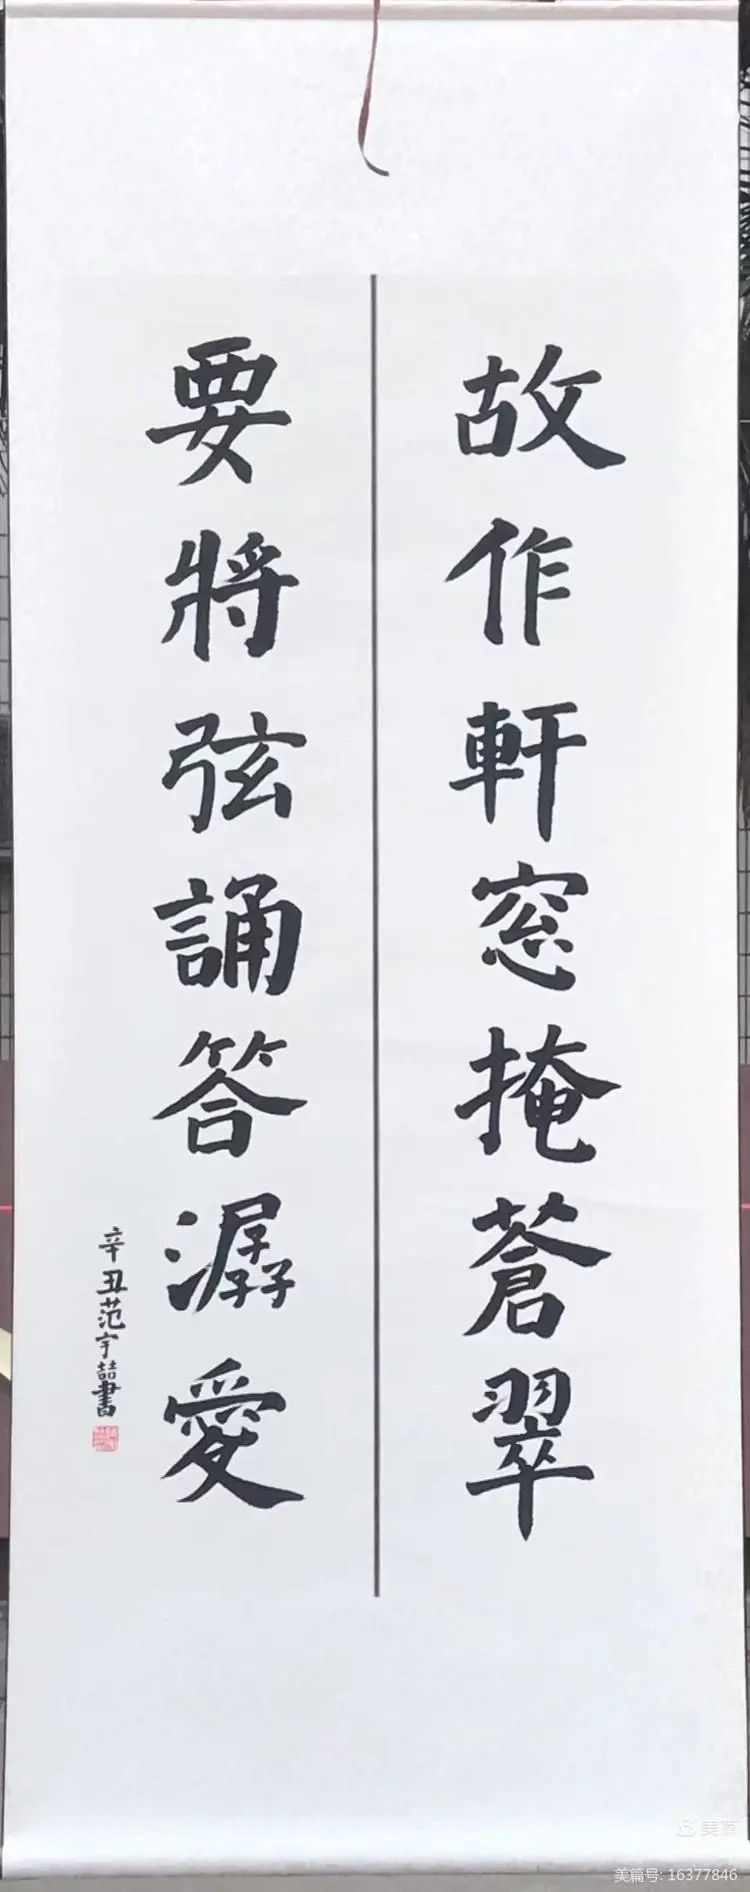 故作軒窓掩蒼翠
要將弦誦答潺愛
辛丑范宇喆書
美篇
美篇号: 16377846